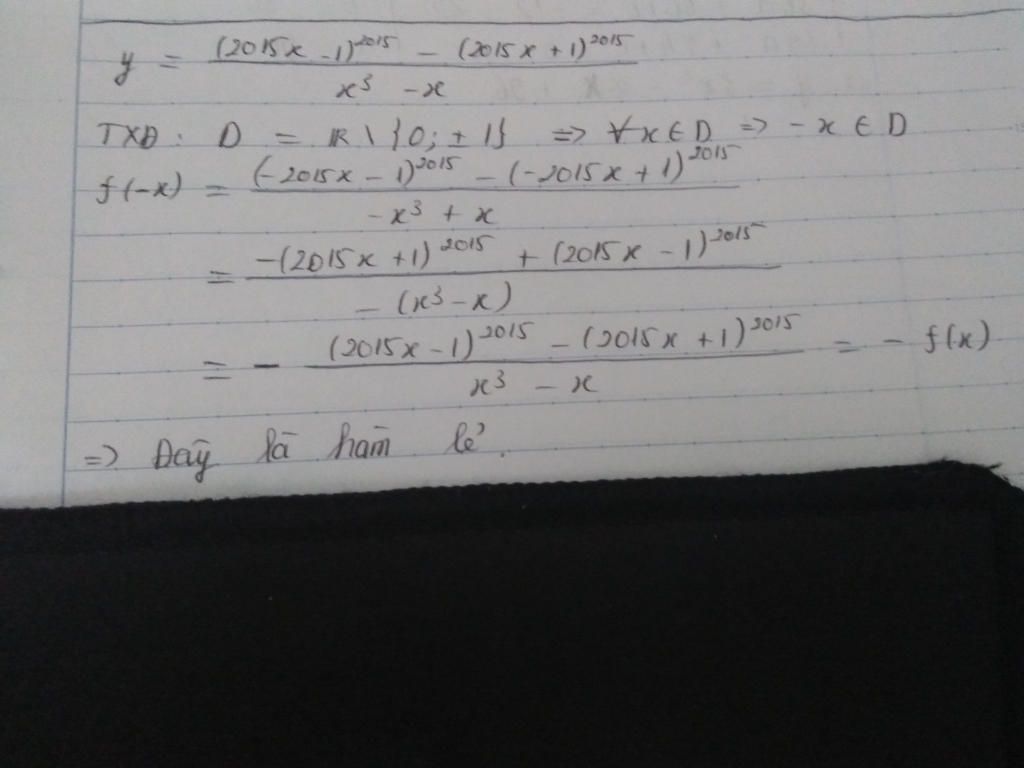 y = \frac{(2015x - 1)^{2015} - (2015x + 1)^{2015}}{x^3 - x}
TXĐ: D = ℝ \ {0; ± 1} => ∀x ∈ D => -x ∈ D
f(-x) = \frac{(-2015x - 1)^{2015} - (-2015x + 1)^{2015}}{-x^3 + x}
= \frac{-(2015x + 1)^{2015} + (2015x - 1)^{2015}}{-(x^3 - x)}
= - \frac{(2015x - 1)^{2015} - (2015x + 1)^{2015}}{x^3 - x} = - f(x)
=> Đây là hàm lẻ.